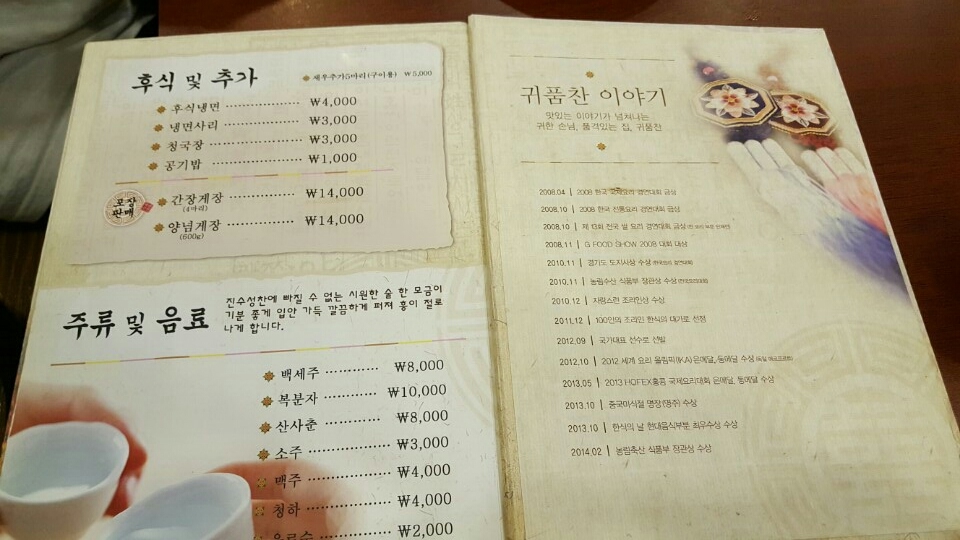 후식 및 추가
새우추가5마리(구이용) ₩5,000
후식냉면 ₩4,000
냉면사리 ₩3,000
청국장 ₩3,000
공기밥 ₩1,000
포장판매
간장게장 ₩14,000
(4마리)
양념게장 ₩14,000
(600g)
주류 및 음료
진수성찬에 빠질 수 없는 시원한 술 한 모금이
기분 좋게 입안 가득 깔끔하게 퍼져 흥이 절로
나게 합니다.
백세주 ₩8,000
복분자 ₩10,000
산사춘 ₩8,000
소주 ₩3,000
맥주 ₩4,000
청하 ₩4,000
음료수 ₩2,000
귀품찬 이야기
맛있는 이야기가 넘쳐나는
귀한 손님, 품격있는 집, 귀품찬
2008.04 | 2008 한국 국제요리 경연대회 금상
2008.10 | 2008 한국 전통요리 경연대회 금상
2008.10 | 제 13회 전국 쌀 요리 경연대회 금상
2008.11 | G FOOD SHOW 2008 대회 대상
2010.11 | 경기도 도지사상 수상
2010.11 | 농림수산 식품부 장관상 수상
2010.12 | 자랑스런 조리인상 수상
2011.12 | 100인의 조리인 한식의 대가로 선정
2012.09 | 국가대표 선수로 선발
2012.10 | 2012 세계 요리 올림픽(IKA) 은메달, 동메달 수상
2013.05 | 2013 HOFEX홍콩 국제요리대회 은메달, 동메달 수상
2013.10 | 중국미식절 명장(명주) 수상
2013.10 | 한식의 날 현대음식부분 최우수상 수상
2014.02 | 농림축산 식품부 장관상 수상